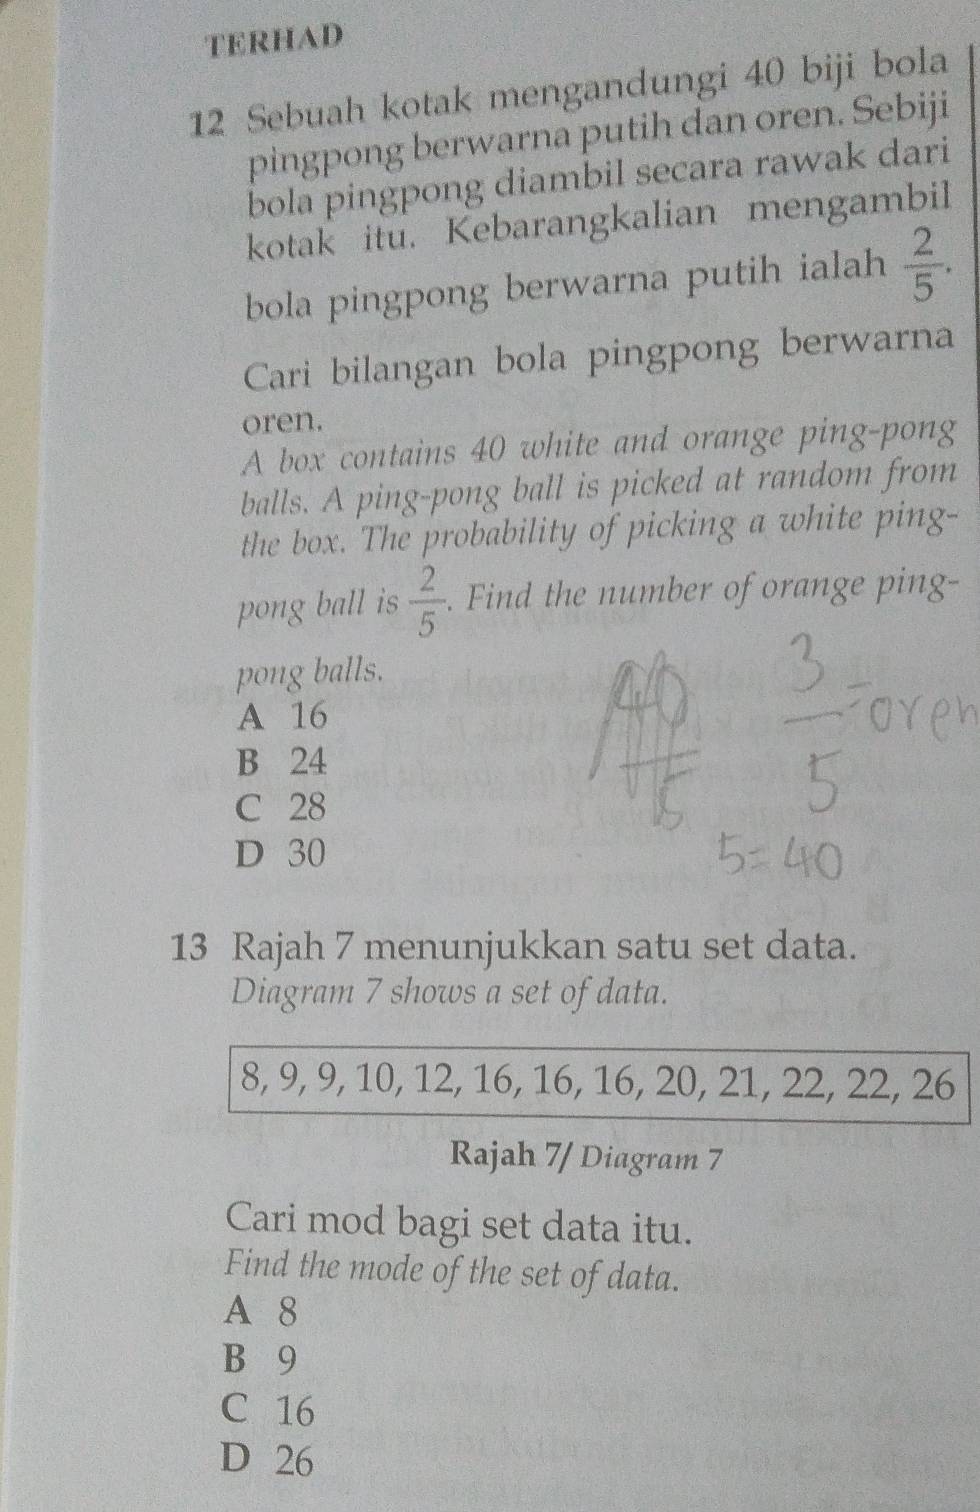 TERHAD
12 Sebuah kotak mengandungi 40 biji bola
pingpong berwarna putih dan oren. Sebiji
bola pingpong diambil secara rawak dari
kotak itu. Kebarangkalian mengambil
bola pingpong berwarna putih ialah 2/5.
Cari bilangan bola pingpong berwarna
oren.
A box contains 40 white and orange ping-pong
balls. A ping-pong ball is picked at random from
the box. The probability of picking a white ping-
pong ball is 2/5. Find the number of orange ping-
pong balls.
A 16
B 24
C 28
D 30
3/5 = oren
5 = 40
13 Rajah 7 menunjukkan satu set data.
Diagram 7 shows a set of data.
8, 9, 9, 10, 12, 16, 16, 16, 20, 21, 22, 22, 26
Rajah 7/ Diagram 7
Cari mod bagi set data itu.
Find the mode of the set of data.
A 8
B 9
C 16
D 26